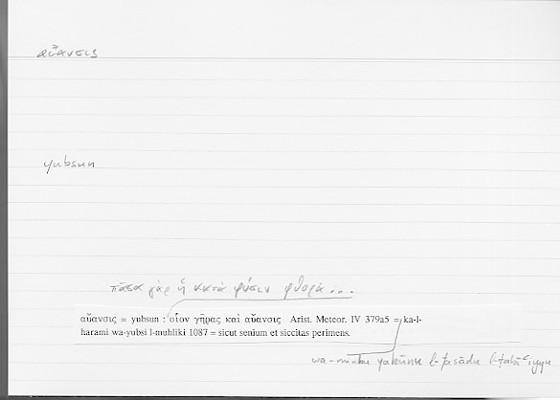 αὔανσις
yubsun
πᾶσα γὰρ ἡ κατὰ φύσιν φθορὰ ...
αὔανσις = yubsun : οἷον γῆρας καὶ αὔανσις Arist. Meteor. IV 379a5 = ka-l-
harami wa-yubsi l-muhliki 1087 = sicut senium et siccitas perimens.
wa-minhu yakūnu l-fasādu l-ṭabāʿiyyu